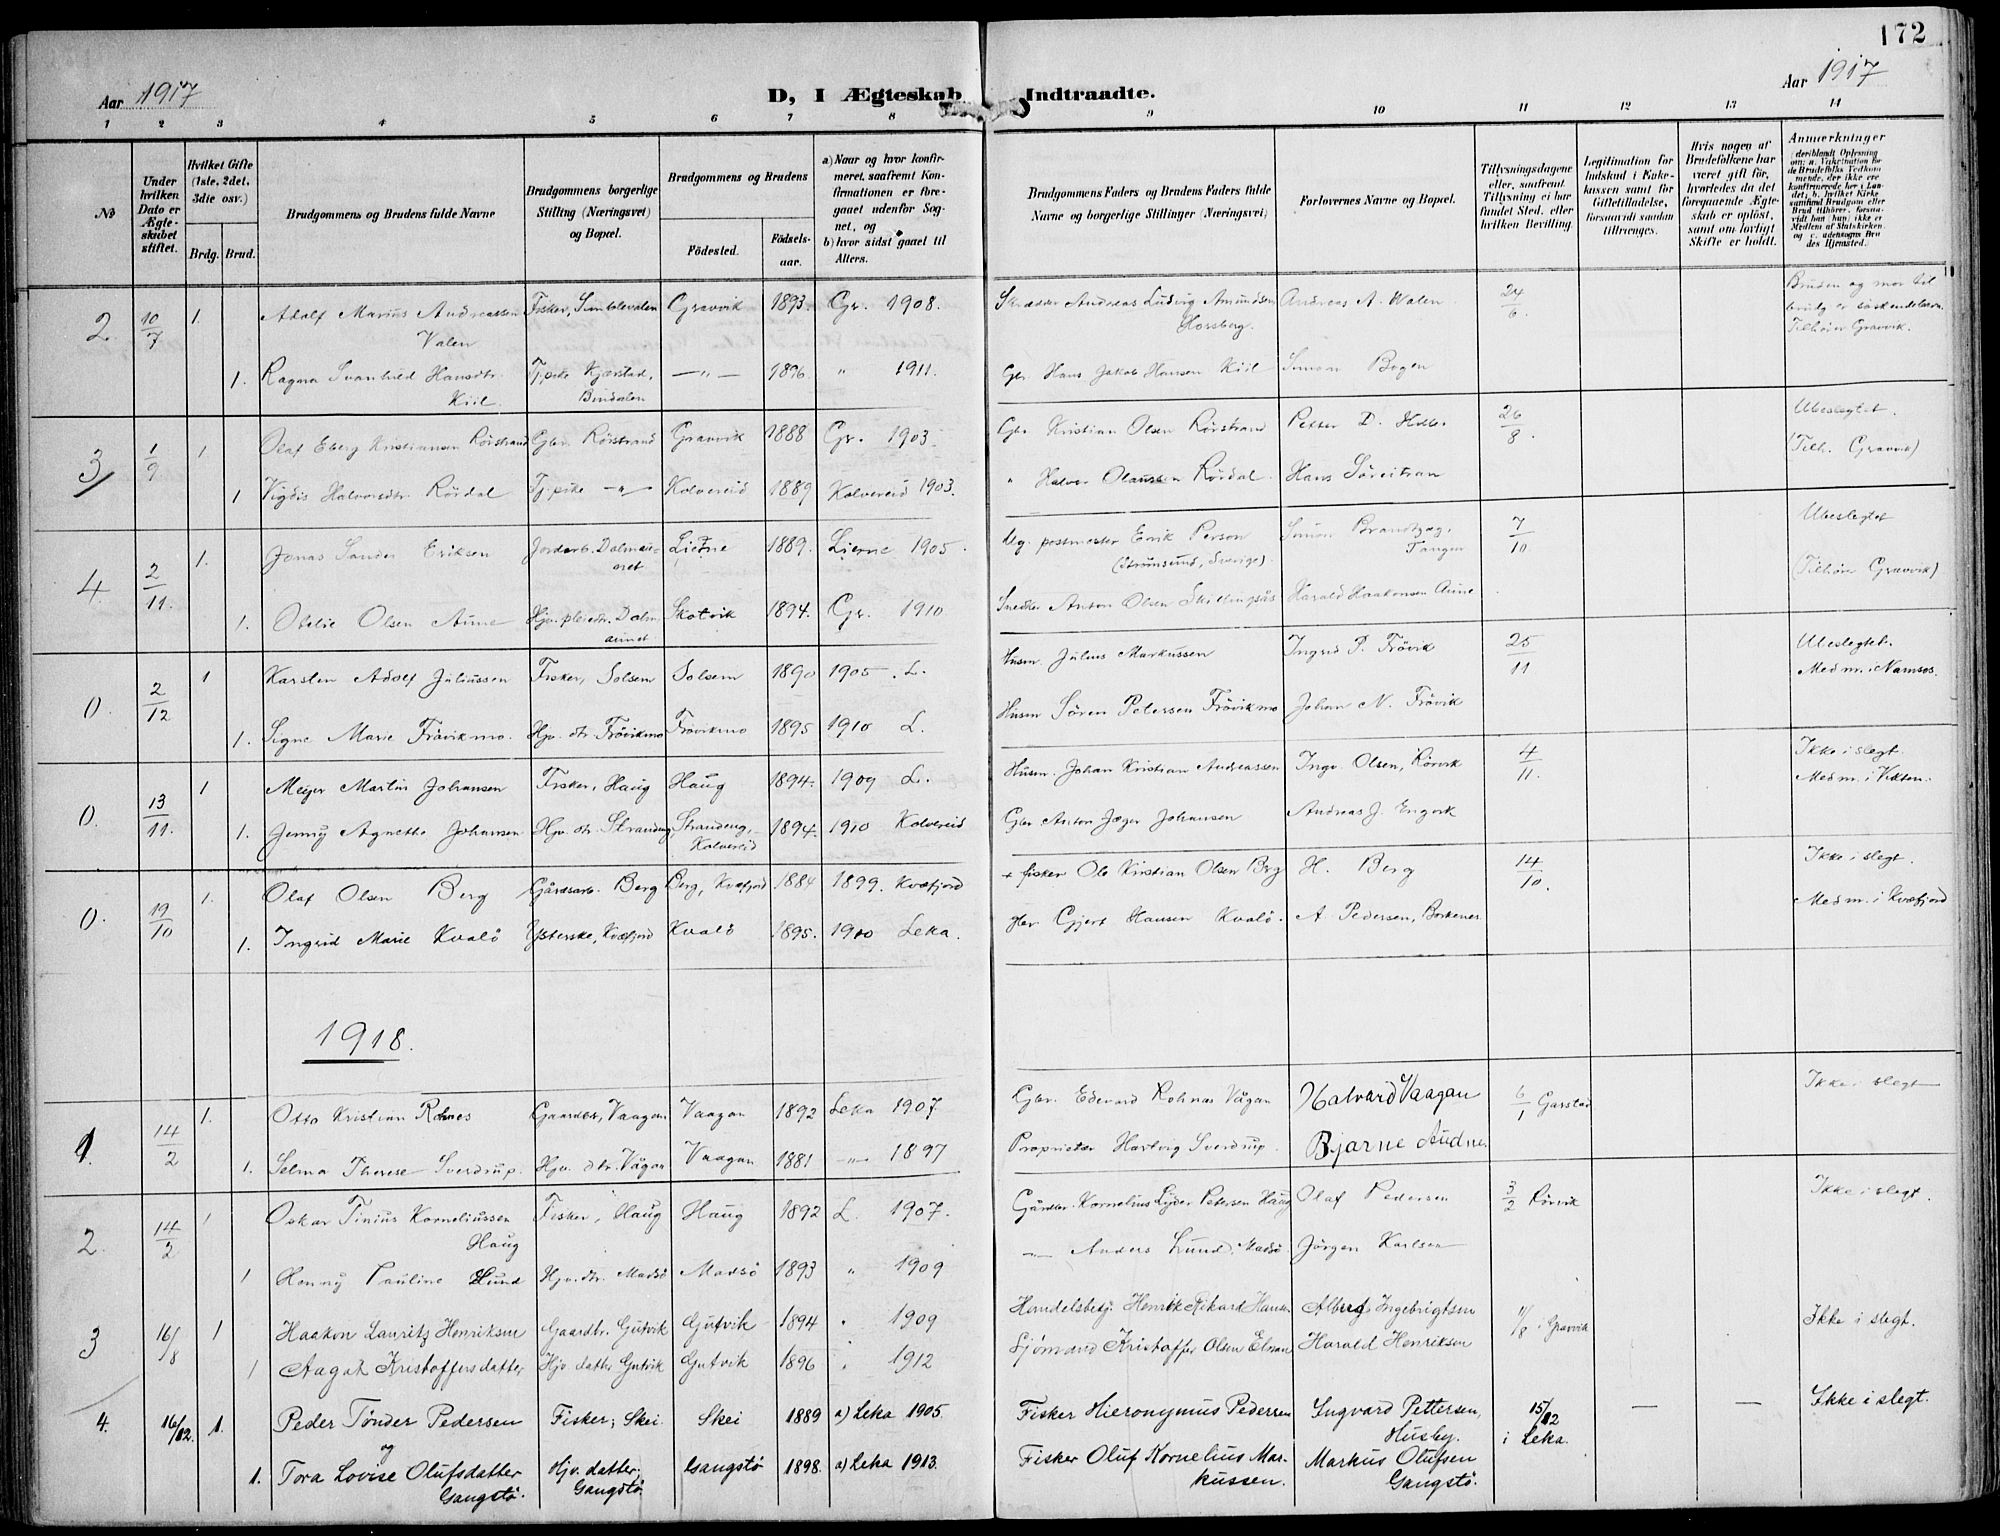 172
Aar 1917
D, I Ægteskab Indtraadte.
Aar 1917
1 2 3 4 5 6 7 8 9 10 11 12 13 14
No
Under hvilken Dato er Ægteskabet stiftet.
Hvilket Gifte (1ste, 2det, 3die osv.)
Brdg. Brud.
Brudgommens og Brudens fulde Navne
Brudgommens borgerlige Stilling (Næringsvei) og Bopæl.
Brudgommens og Brudens
Födested.
Födselsaar.
a) Naar og hvor konfirmeret, saafremt Konfirmationen er foregaaet udenfor Sognet, og
b) hvor sidst gaaet til Alters.
Brudgommens Faders og Brudens Faders fulde Navne og borgerlige Stillinger (Næringsvei)
Forlovernes Navne og Bopæl.
Tillysningsdagene eller, saafremt Tillysning ei har fundet Sted, efter hvilken Bevilling.
Legitimation for Indskud i Enkekassen samt for Giftetilladelse, forsaavidt saadan tiltrænges.
Hvis nogen af Brudefolkene har været gift för, hvorledes da det foregaaende Ægteskab er oplöst, samt om lovligt Skifte er holdt.
Anmærkninger
2. 10/7 1. Adolf Marius Andreassen Valen Fisker, Gravvik 1893. Gr. 1908. Skrædder Andreas Ludvig Amundsen Horsberg. Andreas A. Valen 24/6 Bruden og mor til brudg. er Tilhører Gravvik.
1. Ragna Svanhild Hansdtr. Kiil. Tj.pike Kjærstad, Bindalen —"— 1896. " 1911. Gbr. Hans Jakob Hansen Kiil Simon Bogen
3/ 1/9 1 Olaf Eberg Kristiansen Rörstrand Gbr. Rörstrand Gravvik 1888 Gr. 1903. Gbr. Kristian Olsen Rörstrand Petter D. 26/8. Ubeslegtet. (Tilh. Gravvik)
1 Vigdis Halvorsdtr. Rördal Tj.pike —"— Kolvereid 1889 Kolvereid 1903. " Halvor Olaussen Rördal. Hans
4. 2/11. 1. Jonas Sander Eriksen Jordarb. Dalmaunet Lierne 1889. Lierne 1905. Ug. postmester Erik Person (Strömsund, Sverige). Simon Brandtzæg. Tangen 7/10 Ubeslegtet (Tilhører Gravvik)
1. Otelie Olsen Aune Hjv. pleiedtr. Dalmaunet Skotvik 1894. Gr. 1910 Snedker Anton Olsen Skillingsås Harald Haakonsen Aune
0. 2/12 1 Karsten Adolf Juliussen Fisker, Solsem Solsem 1890 1905. L. Husm. Julius Markussen Ingrid P. Frövik 25/11 Ubeslegtet. Medm. i Namsos.
1. Signe Marie Frövikmo. Hjv. dtr. Frövikmo Frövikmo 1895 1910 L. Husm Sören Petersen Frövikmo Johan N. Frövik
0. 13/11. 1 Meyer Martin Johansen Fisker, Haug Haug 1894. 1909 L. Husm. Johan Kristian Andreassen Ingv. Olsen, Rörvik 4/11. Ikke i slegt. Medm. i Vikten.
1. Jenny Agnethe Johansen Hjv. dtr. Strandeng Strandeng, Kolvereid 1894. 1910 Kolvereid Gbr Anton Jæger Johansen Andreas J. Engvik
0. 19/10 1. Olaf Olsen Berg Gårdsarb. Berg Berg, Kvæfjord 1884 1899. Kvæfjord + fisker Ole Kristian Olsen Berg H. Berg 14/10. Ikke i slegt. Medm. i Kvæfjord
1. Ingrid Marie Kvalö Ysterske, Kvæfjord Kvalö 1895. 1910 Leka. Gjert Hansen Kvalö. A. Pedersen, Borkenes
1918.
1. 14/2 1. Otto Kristian Rohnes Gaardbr, Vaagan Vaagan 1892 Leka 1907. Gbr. Edevard Rohnas Vågan Halvard Vaagan 6/1 Garstad Ikke i slegt
1. Selma Therese Sverdrup. Hjv. dtr. Vågan Vaagan 1881 —"— 1897 Proprietær Hartvig Sverdrup. Bjarne Audne.
2. 14/2 1 Oskar Tinius Korneliussen Haug Fisker, Haug Haug 1892 L. 1907. Gårdbr. Kornelius Lyder Petersen Haug Olaf Pedersen 3/2 Rörvik Ikke i slegt.
1 Henny Pauline Lund Hjv. dtr. Madsö Madsö 1893 " 1909 —"— Anders Lund, Madsö. Jörgen Karlsen
3 16/8 1 Haakon Lauritz Henriksen Gaardbr. Gutvik Gutvik 1894 " 1909 Handelsbetj. Henrik Rikard Hansen Albert Ingebrigtsen 11/8 i Gravvik Ikke i slegt.
1 Aagot Kristoffersdatter Hjv. datter Gutvik Gutvik 1896 " 1912 Sjömand Kristoffer Olsen Harald Henriksen
4. 16/12. 1. Peder Tönder Pedersen Fisker; Skei Skei 1889 a) Leka 1905. Fisker Hieronymus Pedersen Ingvard Pettersen, Husby. 15/12 i Leka. — — Ikke i slegt.
og
1. Tora Lovise Olufsdatter Gangstö. Hjv. datter; Gangstö Gangstö 1898. a) Leka 1913. Fisker Oluf Kornelius Markussen. Markus Olufsen Gangstö.